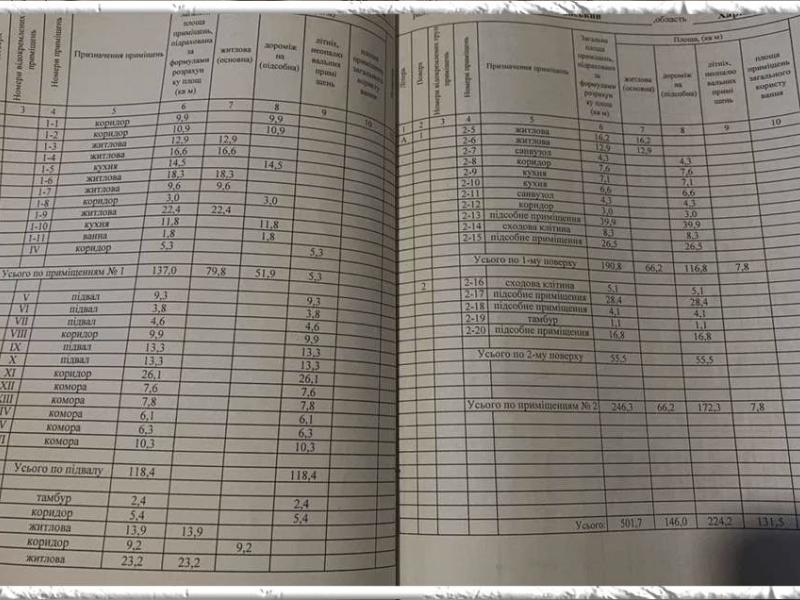 Номери відокремлених приміщень
Номери приміщень
Призначення приміщень
площа приміщень, підрахована за формулами розрахунку площ (кв м)
житлова (основна)
дороміжна (підсобна)
літніх, неопалювальних приміщень
площа приміщень загального користування
3 4 5 6 7 8 9 10
1-1 коридор 9,9 9,9
1-2 коридор 10,9 10,9
1-3 житлова 12,9 12,9
1-4 житлова 16,6 16,6
1-5 кухня 14,5 14,5
1-6 житлова 18,3 18,3
1-7 житлова 9,6 9,6
1-8 коридор 3,0 3,0
1-9 житлова 22,4 22,4
1-10 кухня 11,8 11,8
1-11 ванна 1,8 1,8
IV коридор 5,3 5,3
Усього по приміщенням № 1 137,0 79,8 51,9 5,3
V підвал 9,3 9,3
VI підвал 3,8 3,8
VII підвал 4,6 4,6
VIII коридор 9,9 9,9
IX підвал 13,3 13,3
X підвал 13,3 13,3
XI коридор 26,1 26,1
XII комора 7,6 7,6
комора 7,8 7,8
комора 6,1 6,1
комора 6,3 6,3
комора 10,3 10,3
Усього по підвалу 118,4 118,4
тамбур 2,4 2,4
коридор 5,4 5,4
житлова 13,9 13,9
коридор 9,2 9,2
житлова 23,2 23,2
,область
Літера
Поверх
Номери приміщень
Призначення приміщень
Загальна площа приміщень, підрахована за формулами розрахунку площ (кв м)
Площа, (кв м)
житлова (основна)
дороміжна (підсобна)
літніх, неопалювальних приміщень
площа приміщень загального користування
1 2 3 4 5 6 7 8 9 10
А 1 2-5 житлова 16,2 16,2
2-6 житлова 12,9 12,9
2-7 санвузол 4,3 4,3
2-8 коридор 7,6 7,6
2-9 кухня 7,1 7,1
2-10 кухня 6,6 6,6
2-11 санвузол 4,3 4,3
2-12 коридор 3,0 3,0
2-13 підсобне приміщення 39,9 39,9
2-14 сходова клітина 8,3 8,3
2-15 підсобне приміщення 26,5 26,5
Усього по 1-му поверху 190,8 66,2 116,8 7,8
2 2-16 сходова клітина 5,1 5,1
2-17 підсобне приміщення 28,4 28,4
2-18 підсобне приміщення 4,1 4,1
2-19 тамбур 1,1 1,1
2-20 підсобне приміщення 16,8 16,8
Усього по 2-му поверху 55,5 55,5
Усього по приміщенням № 2 246,3 66,2 172,3 7,8
Усього: 501,7 146,0 224,2 131,5